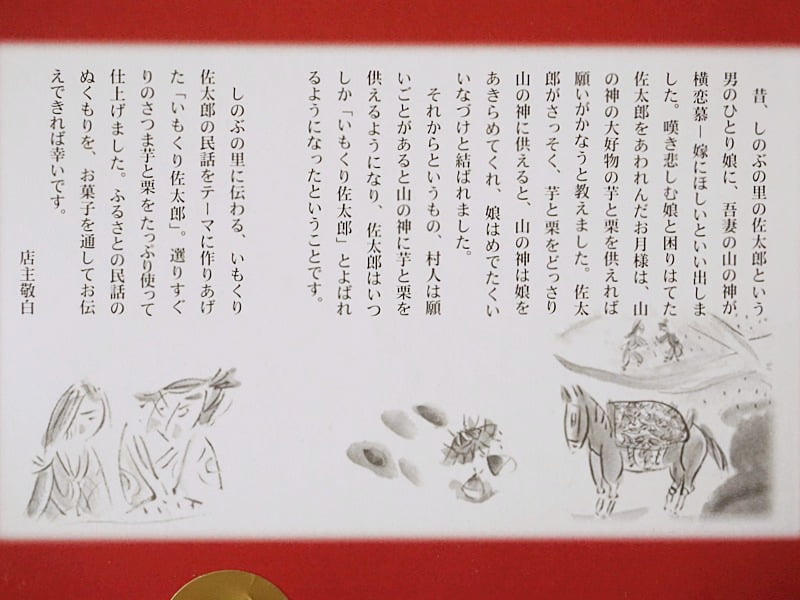 昔、しのぶの里の佐太郎という
男のひとり娘に、吾妻の山の神が
横恋慕―嫁にほしいといい出しま
した。嘆き悲しむ娘と困りはてた
佐太郎をあわれんだお月様は、山
の神の大好物の芋と栗を供えれば
願いがかなうと教えました。佐太
郎がさっそく、芋と栗をどっさり
山の神に供えると、山の神は娘を
あきらめてくれ、娘はめでたくい
いなづけと結ばれました。
それからというもの、村人は願
いごとがあると山の神に芋と栗を
供えるようになり、佐太郎はいつ
しか「いもくり佐太郎」とよばれ
るようになったということです。
しのぶの里に伝わる、いもくり
佐太郎の民話をテーマに作りあげ
た「いもくり佐太郎」。選りすぐ
りのさつま芋と栗をたっぷり使って
仕上げました。ふるさとの民話の
ぬくもりを、お菓子を通してお伝
えできれば幸いです。
店主敬白